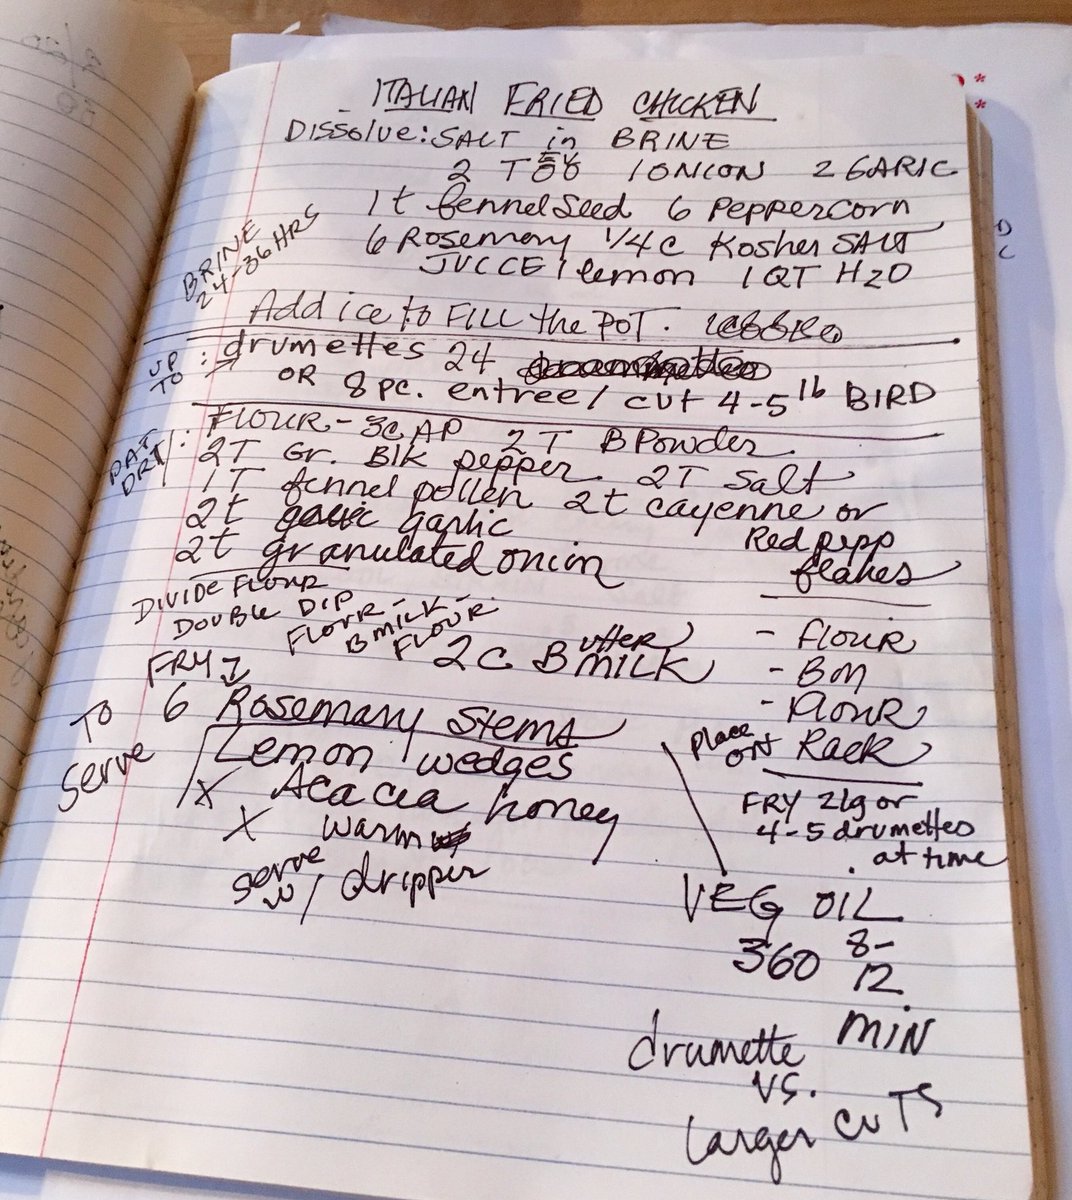 ITALIAN FRIED CHICKEN
DISSOLVE: SALT in BRINE
2 T EVOO 1 ONION 2 GARIC
1 t fennel seed 6 PEPPERCORN
6 Rosemary 1/4 C Kosher SALT
JUCCE 1 lemon 1 QT H2O
BRINE
24-36 HRS
Add ice to FILL the POT.
UP TO : drumettes 24
OR 8 pc. entree / cut 4-5 lb BIRD
PAT DRY : FLOUR - 3C AP 2 T B Powder
2T Gr. Blk pepper 2T Salt
1T fennel pollen 2t cayenne or
2t garlic Red pepp
2t granulated onion flakes
DIVIDE FLOUR
DOUBLE DIP
FLOUR -
BMILK -
FLOUR.
2C Butter MILK
- FLOUR
- BM
- FLOUR
place on Rack
FRY
TO serve
6 Rosemary Stems
Lemon wedges
X Acacia honey
X warm
serve w/ dripper
FRY 2 lg or
4-5 drumettes
at time
VEG OIL
360 8-
12
MIN
drumette
vs.
Larger CUTS